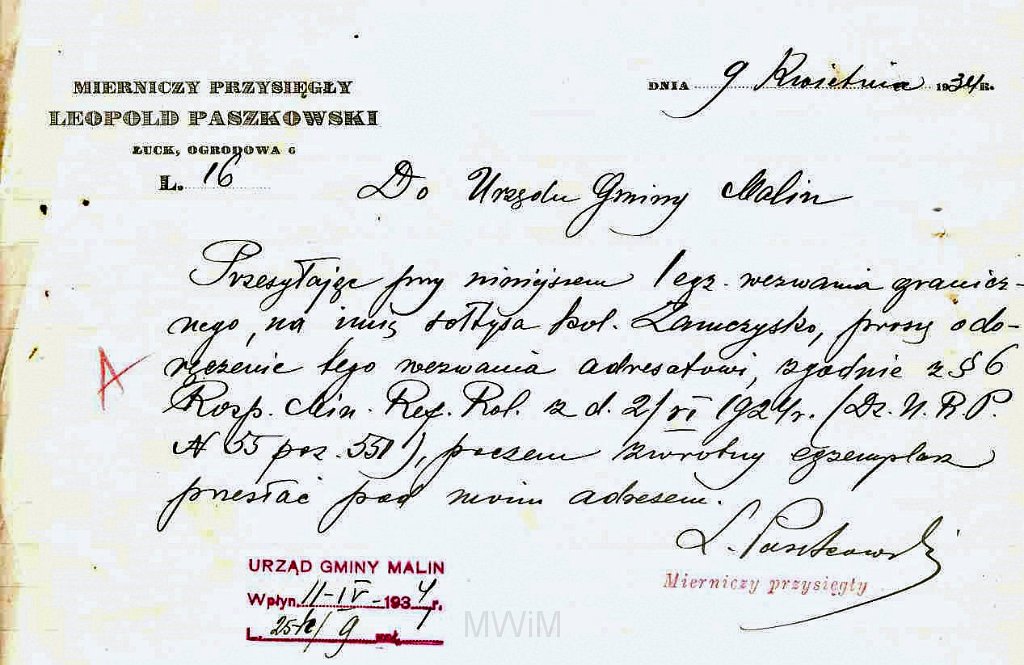 MIERNICZY PRZYSIĘGŁY
LEOPOLD PASZKOWSKI
ŁUCK, OGRODOWA 6
L. 16
DNIA 9 Kwietnia 1934 R.
Do Urzędu Gminy Malin
Przesyłając przy niniejszem 1 egz. wezwania granicz-
nego, na imię sołtysa kol. Zamczysko, proszę o do-
ręczenie tego wezwania adresatowi, zgodnie z § 6
Rozp. Min. Ref. Rol. z d. 2/VI 1924 r. (Dz. U. R. P.
N 55 poz. 551), poczem zwrotny egzemplarz
przesłać pod moim adresem.
L. Paszkowski
Mierniczy przysięgły
A
URZĄD GMINY MALIN
Wpłyn. 11-IV-1934 r.
L. 9
MWiM